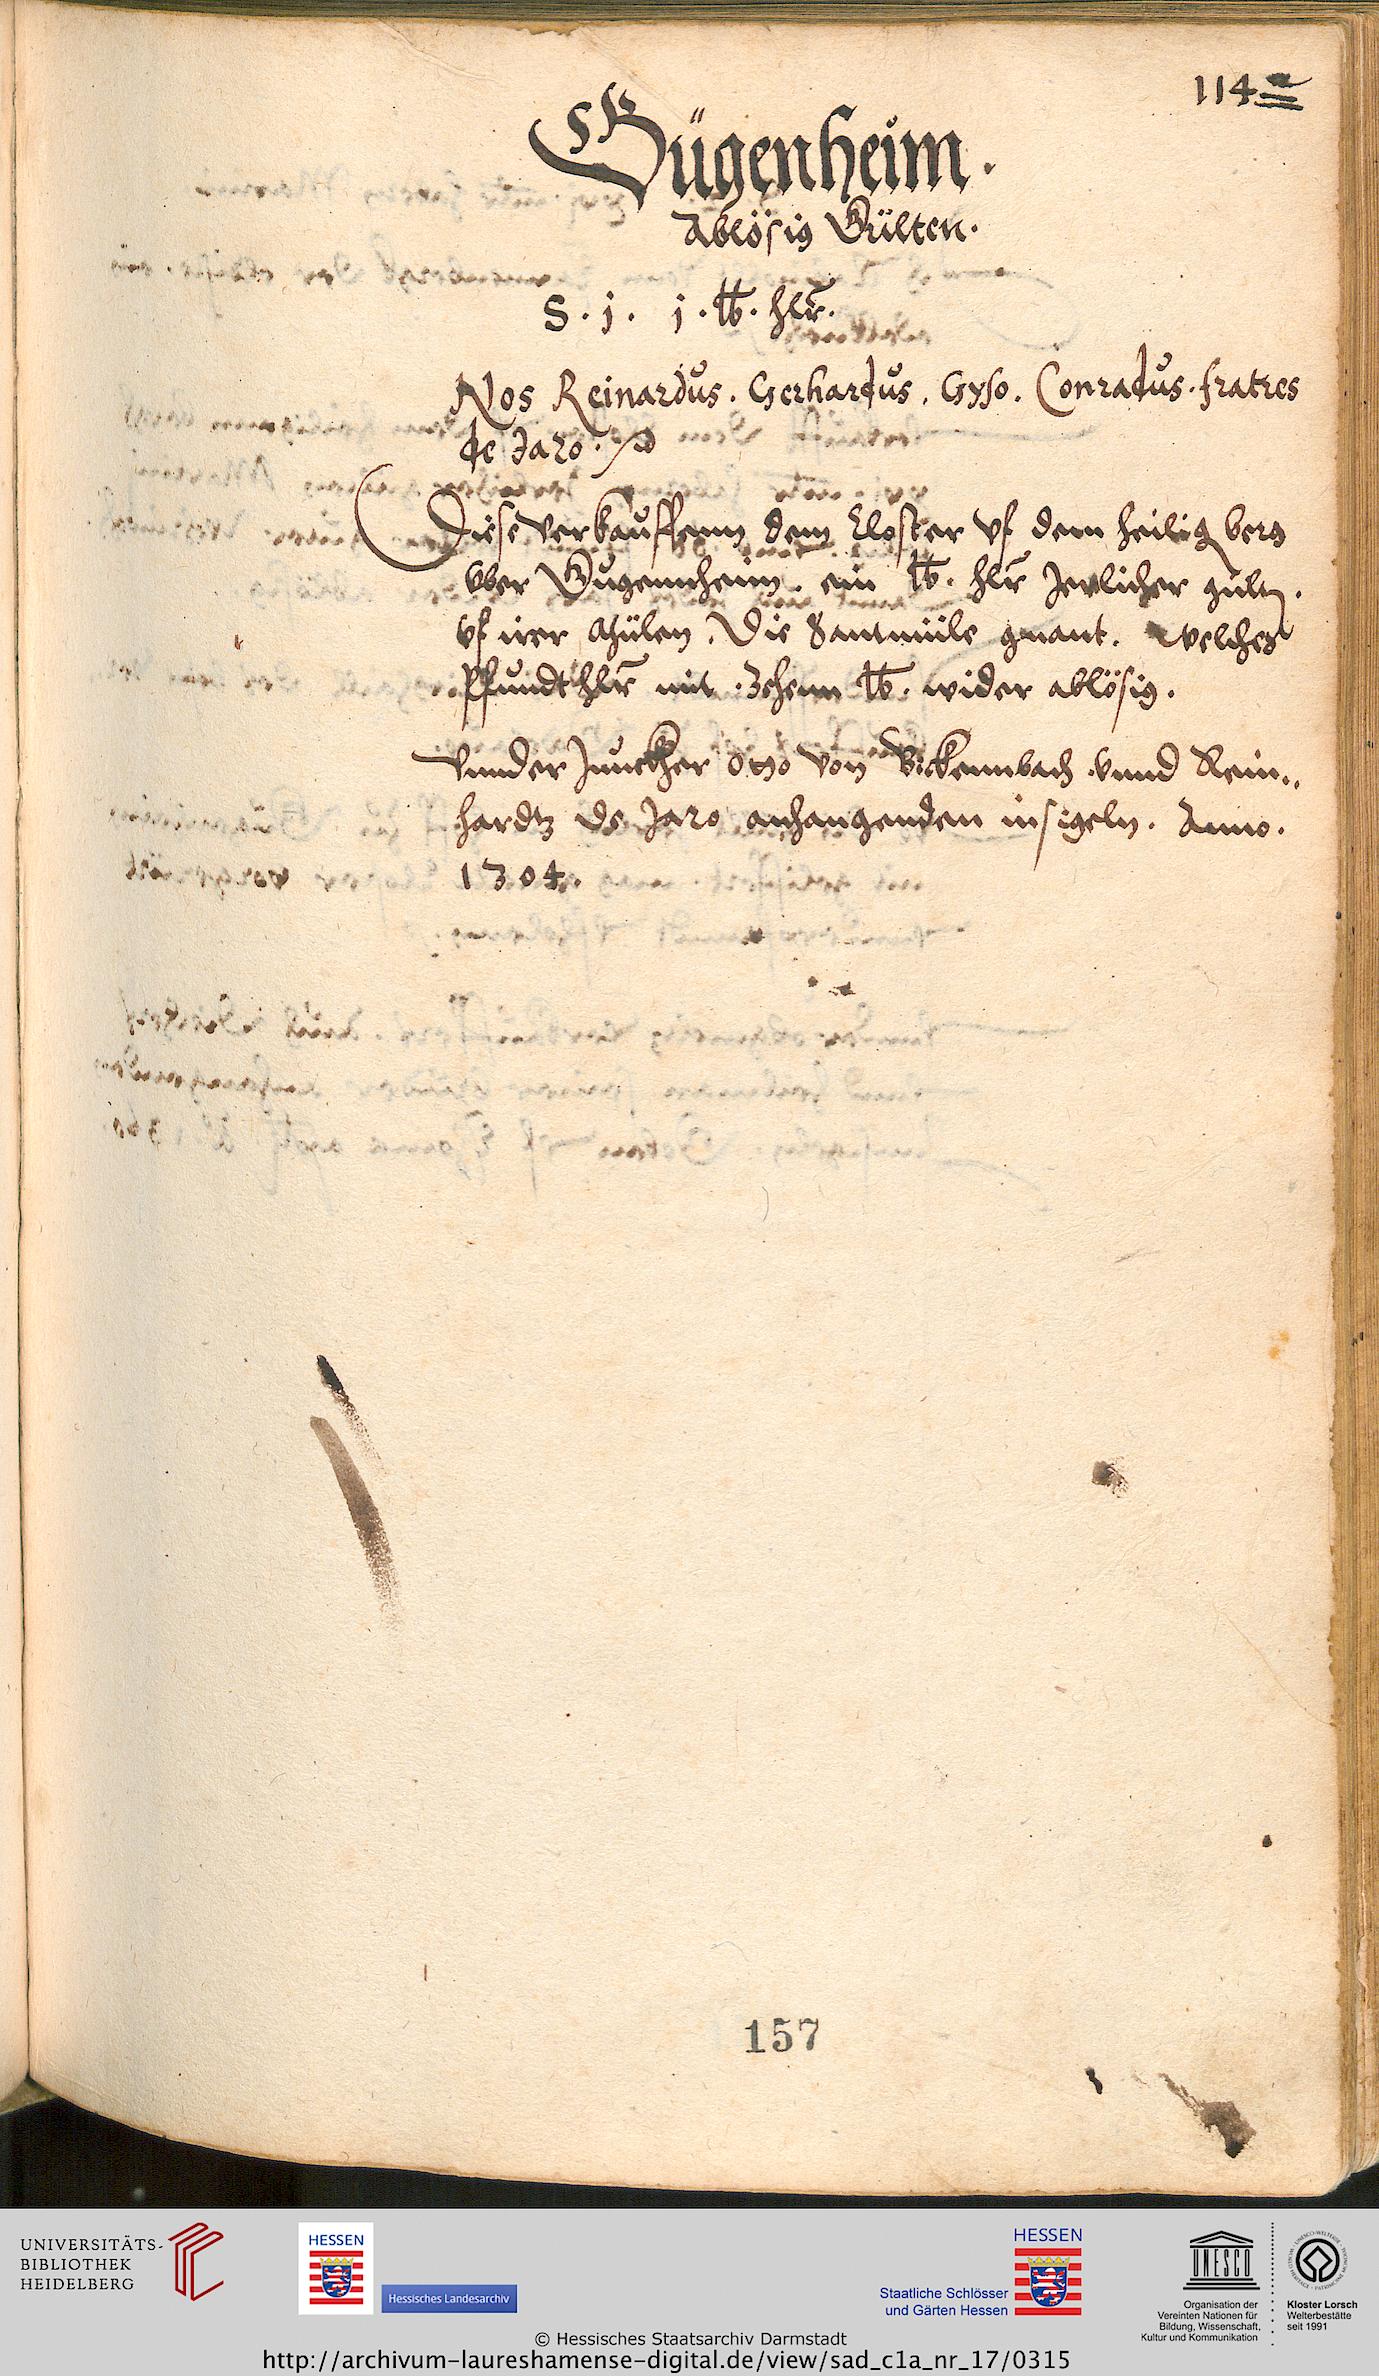 114
Gügenheim.
Ablösig Gülten.
S. j. j. lb. hlr.
Nos Reinardus. Gerhardus. Gyso. Conradus. fratres
de Jazo.
Diese verkauffenn dem Closter vf dem heilig berg
vber Gugennheim. ein lb. hlr Jerlicher gült.
vf irer Mülen. Die Santmüle gnant. welches
pfundt hlr mit zehenn lb. wider ablösig.
Vnnder Junckher Otto von Bickennbach vnnd Rein..
hardtz de Jazo anhangenden insigeln. Anno.
1304.
157
UNIVERSITÄTS-
BIBLIOTHEK
HEIDELBERG
HESSEN
Hessisches Landesarchiv
HESSEN
Staatliche Schlösser
und Gärten Hessen
UNESCO
Organisation der
Vereinten Nationen für
Bildung, Wissenschaft,
Kultur und Kommunikation
Kloster Lorsch
Welterbestätte
seit 1991
© Hessisches Staatsarchiv Darmstadt
http://archivum-laureshamense-digital.de/view/sad_c1a_nr_17/0315